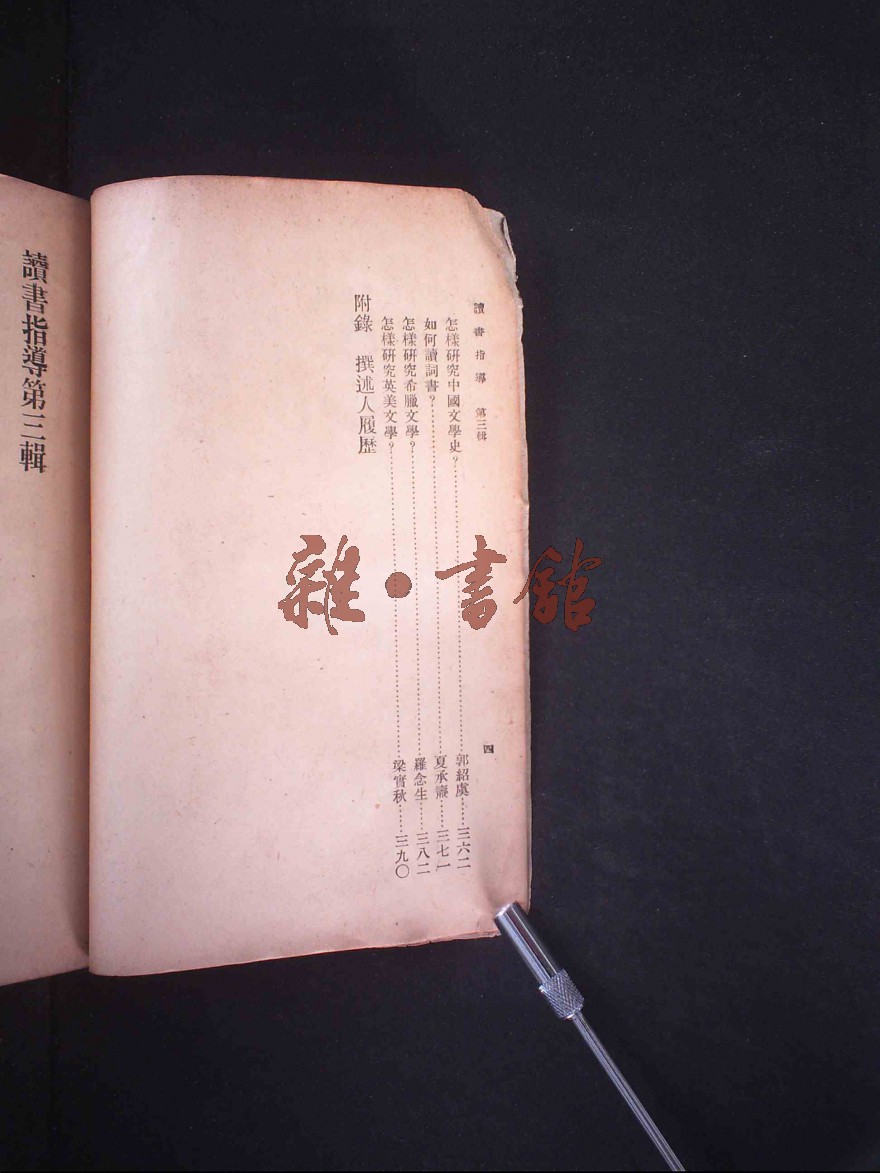 讀書指導 第三輯
四
怎樣研究中國文學史?……郭紹虞……三六二
如何讀詞書?……夏承燾……三七一
怎樣研究希臘文學?……羅念生……三八二
怎樣研究英美文學?……梁實秋……三九〇
附錄 撰述人履歷
讀書指導第三輯
雜·書館